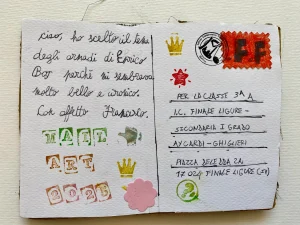 ciao, ho scelto il tema
degli armadi di Enrico
Baj perché mi sembrava
molto bello e ironico.
Con affetto Francesco.
MAIL
ART
2025
FF
PER LA CLASSE 3ª A
I.C. FINALE LIGURE -
SECONDARIA I GRADO
AYCARDI - GHIGLIERI
PIAZZA DELEDDA 2A
17024 FINALE LIGURE (SV)